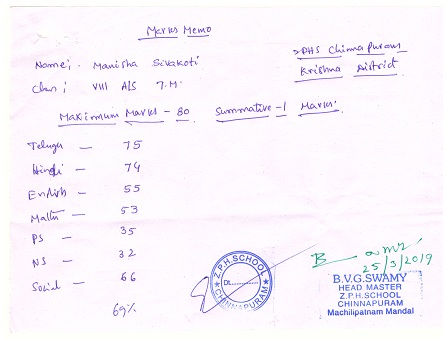 Marks Memo
Name:. Manisha Sivakoti
ZPHS Chinnapuram
Class: VIII A/S T.M.
Krishna District
Maximum Marks - 80 Summative-1 Marks:
Telugu - 75
Hindi - 74
English - 55
Maths - 53
PS - 35
NS - 32
Social - 66
69%
Z.P.H.SCHOOL
Dt.
CHINNAPURAM
25/3/2019
B.V.G.SWAMY
HEAD MASTER
Z.P.H.SCHOOL
CHINNAPURAM
Machilipatnam Mandal